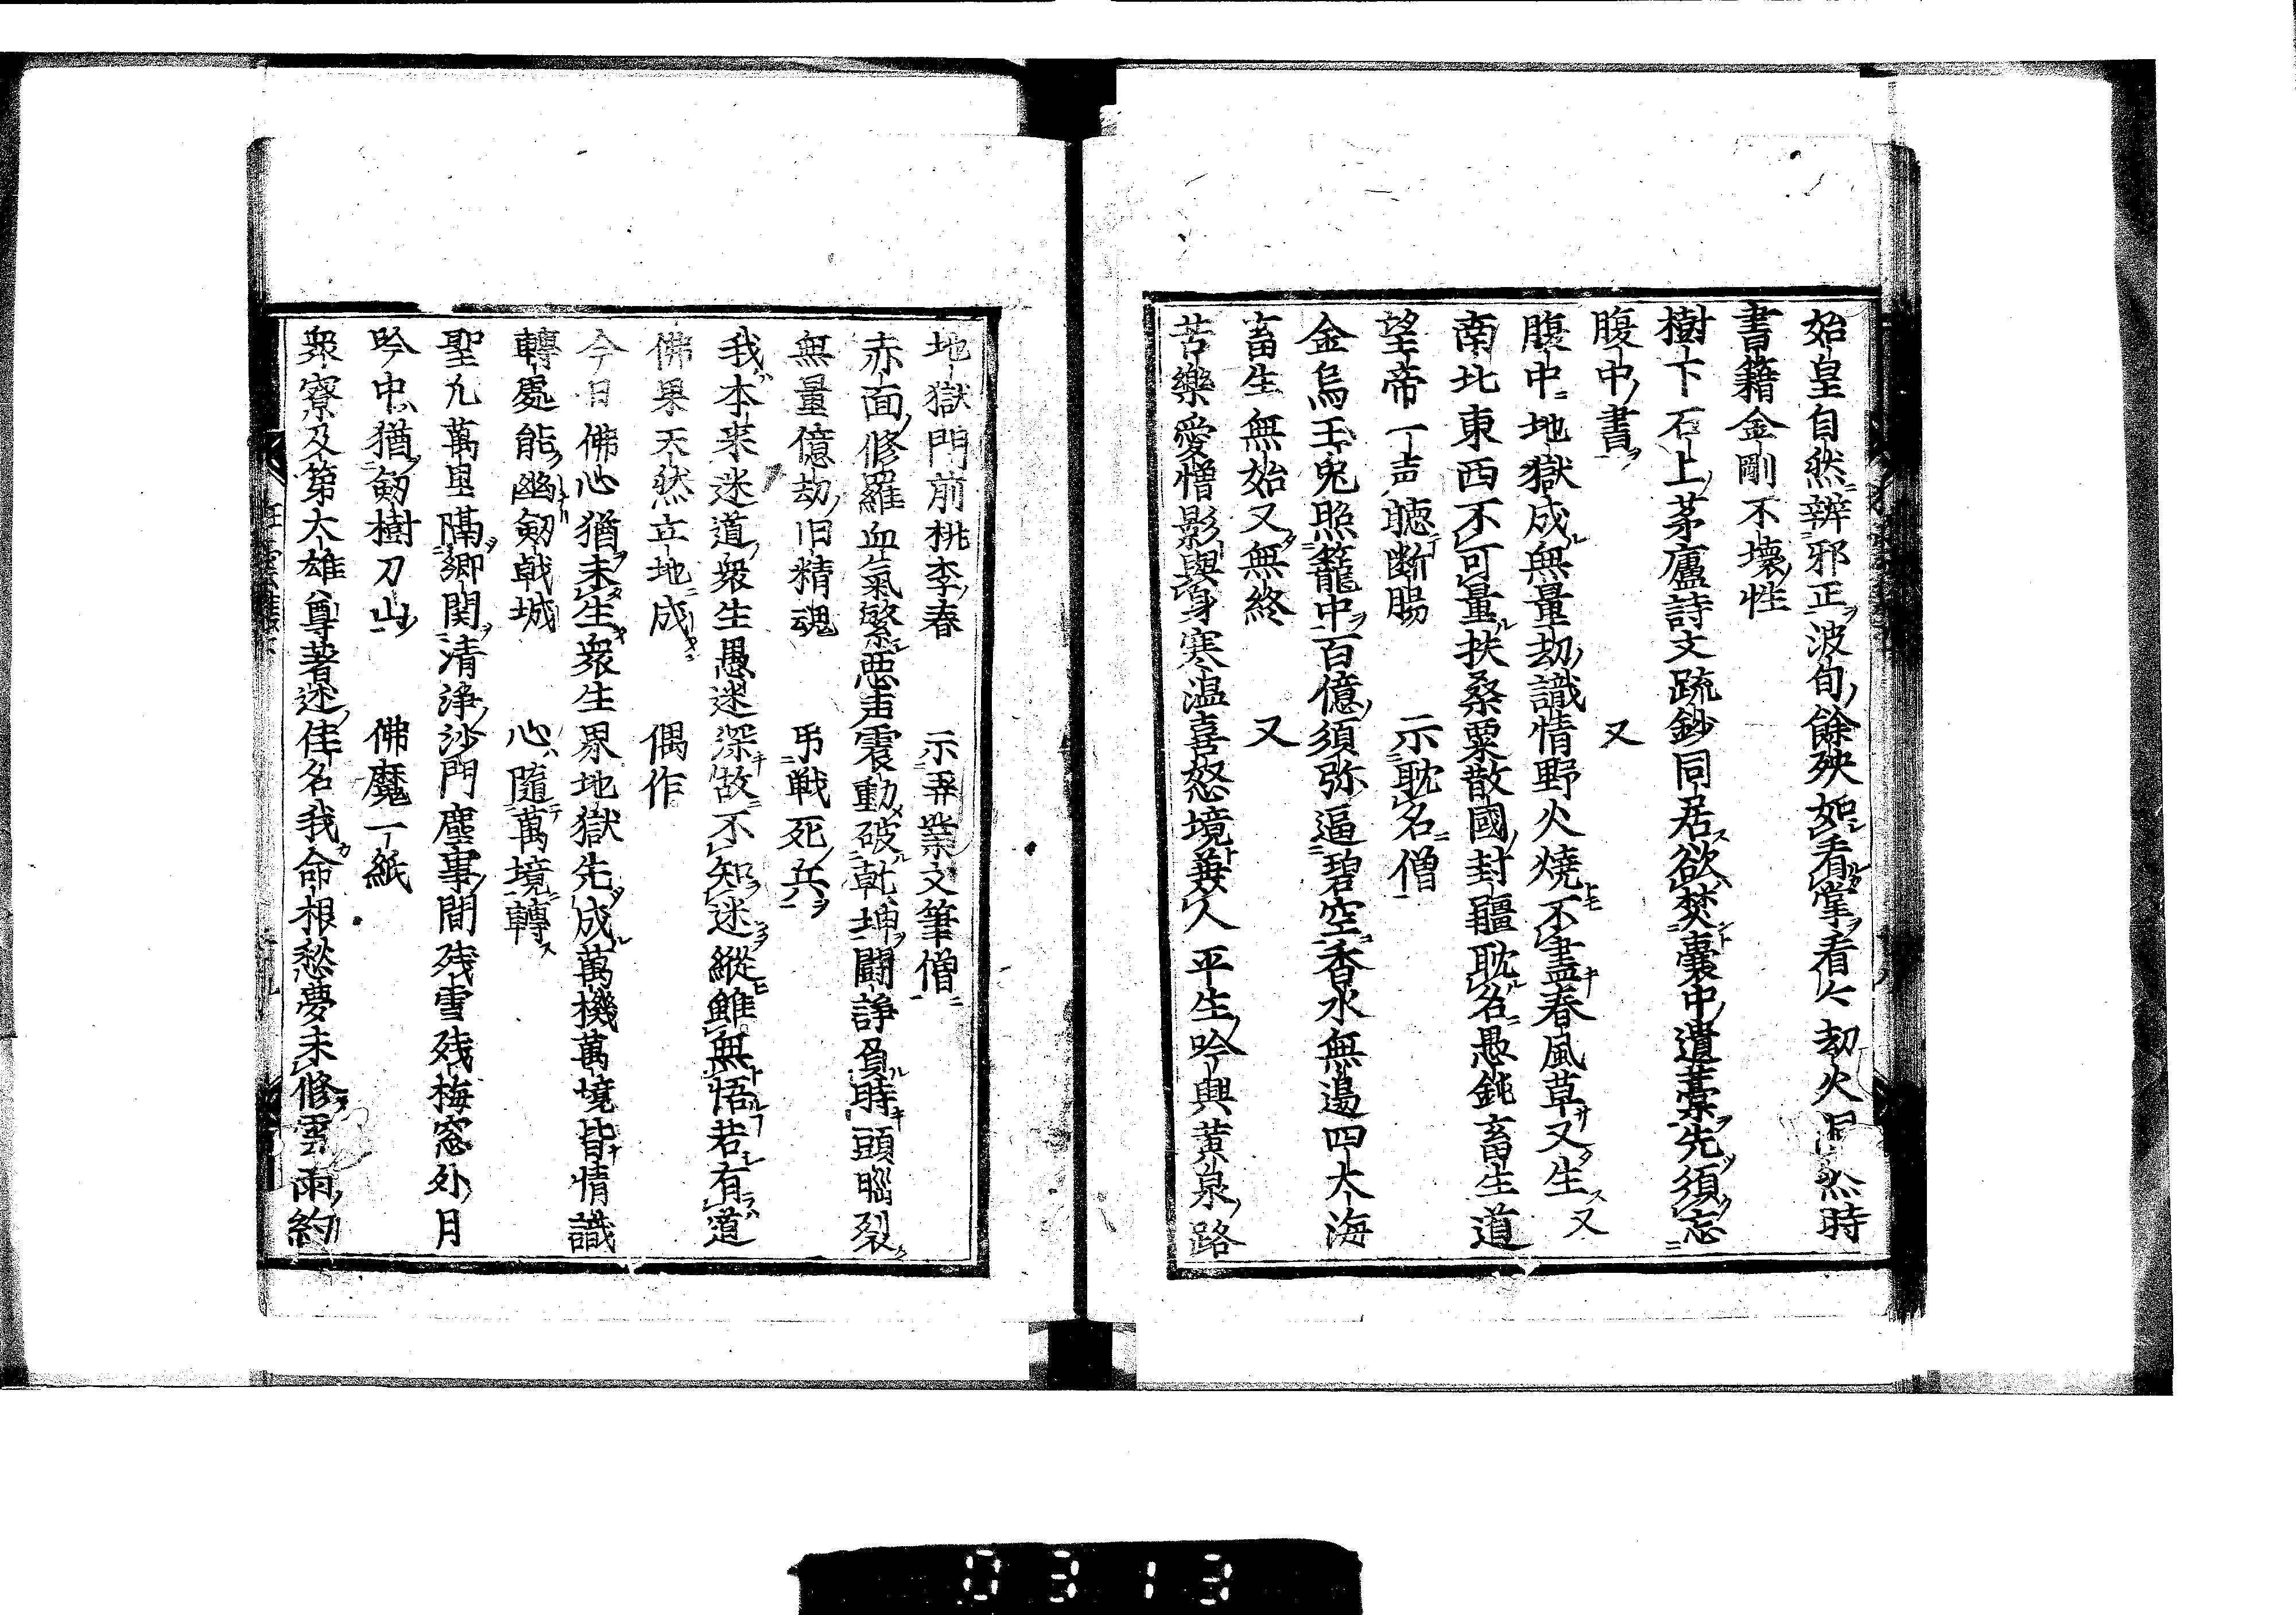 始皇自然辨邪正波旬餘殃如看掌看々劫火洞然時
書籍金剛不壊性
樹下石上茅廬詩文疏鈔同居欲焚囊中遺藁先須忘
腹中書　又
腹中地獄成無量劫識情野火燒不盡春風草又生又
南北東西不可量扶桑粟散國封疆耽名愚鈍畜生道
望帝一声聴断腸　示耽名僧
金烏玉兔照籠中百億須弥逼碧空香水無邊四大海
畜生無始又無終　又
苦樂愛憎影與身寒温喜怒境兼人平生吟興黄泉路
地獄門前桃李春　示弄業文筆僧
赤面修羅血氣繁悪声震動破乾坤闘諍負時頭腦裂
無量億劫旧精魂　弔戦死兵
我本来迷道衆生愚迷深故不知迷縱雖無悟若有道
佛果天然立地成　偶作
今日佛心猶未生衆生界地獄先成萬機萬境皆情識
轉處能幽剱戟城　心隨萬境轉
聖凡萬里隔郷関清浄沙門塵事間残雪残梅窓外月
吟中猶剱樹刀山　佛魔一紙
衆寮及第大雄尊著迷佳名我命根愁夢未修雲雨約
0313